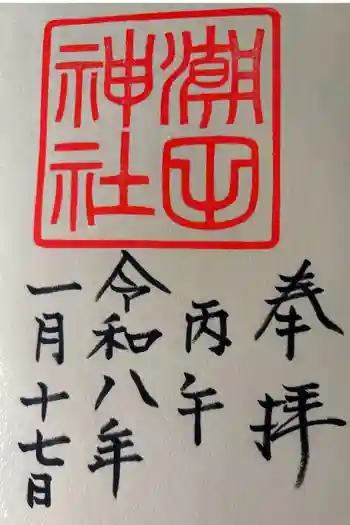 潮田
神社
奉拝
丙午
令和八年
一月十七日